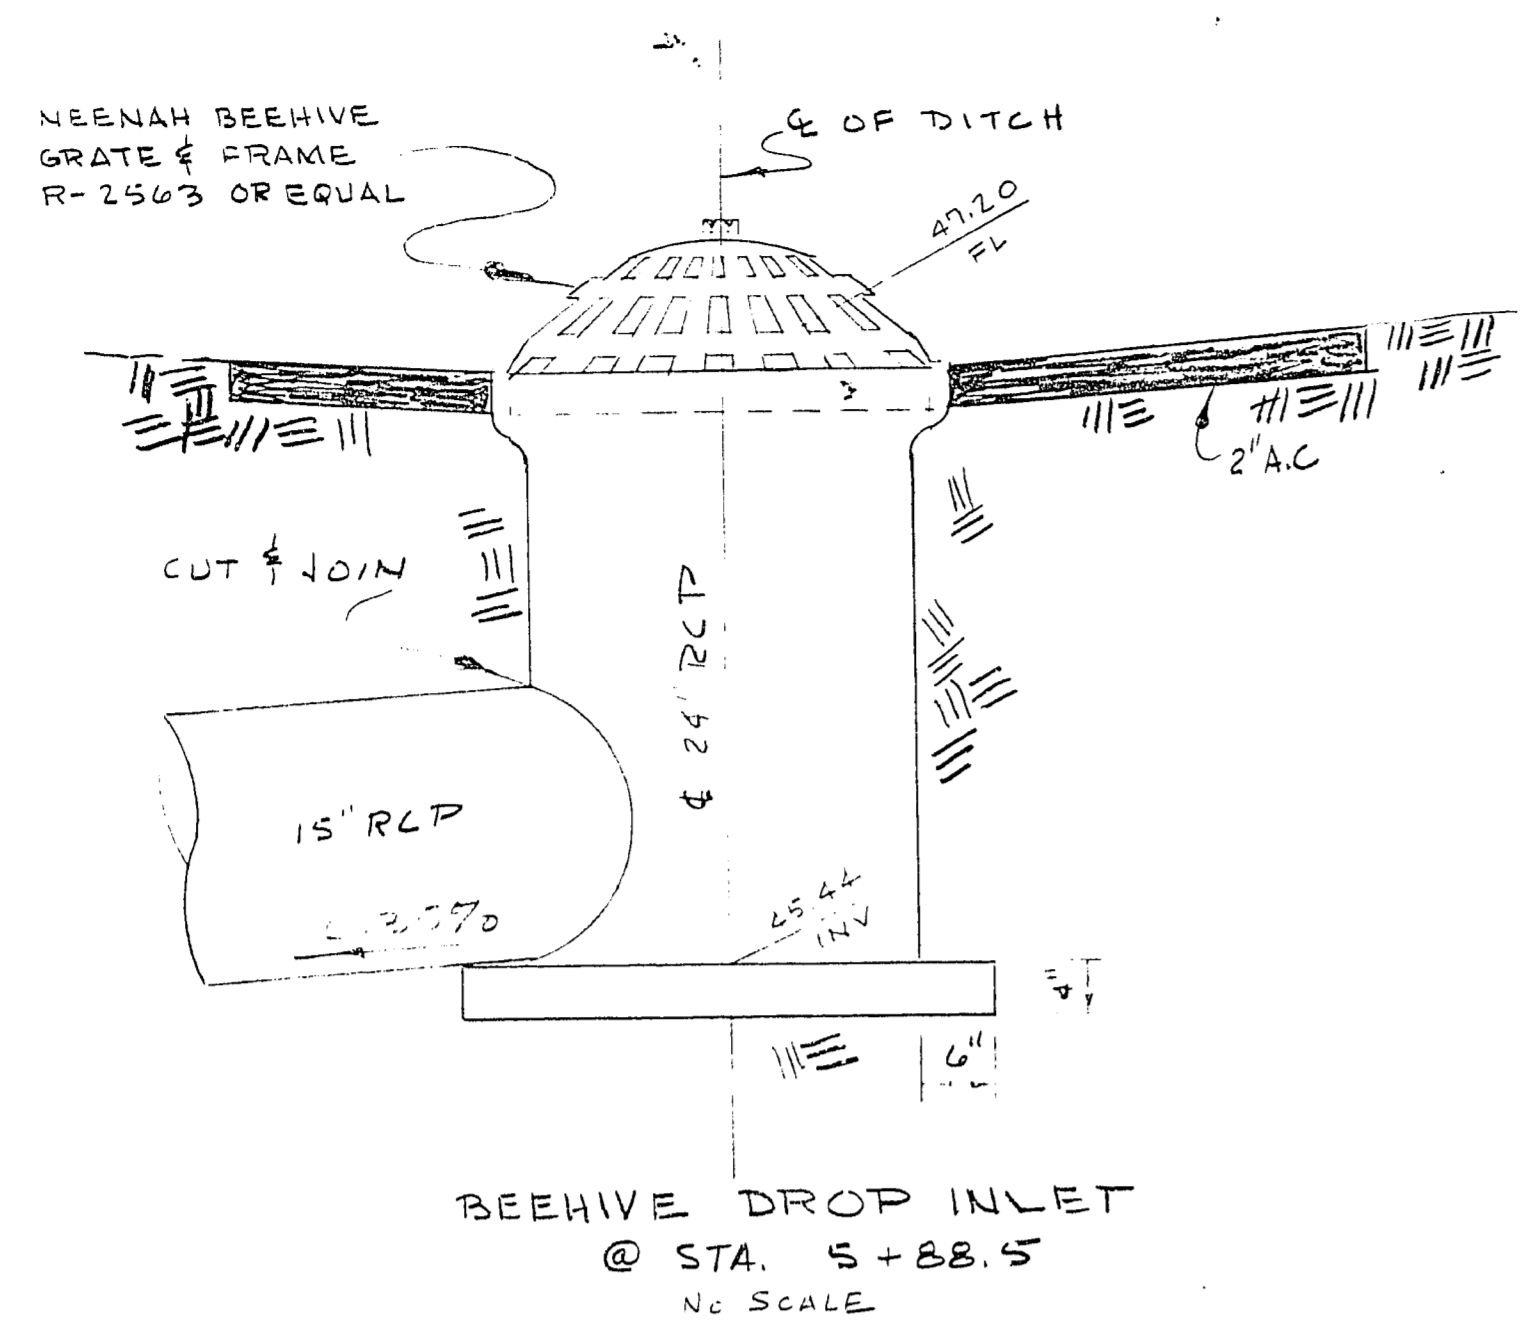 NEENAH BEEHIVE
GRATE & FRAME
R-2563 OR EQUAL
℄ OF DITCH
47.20
FL
2" A.C
CUT & JOIN
℄ 24" RCP
15" RCP
45.44
INV
4"
6"
BEEHIVE DROP INLET
@ STA. 5+88.5
NO SCALE